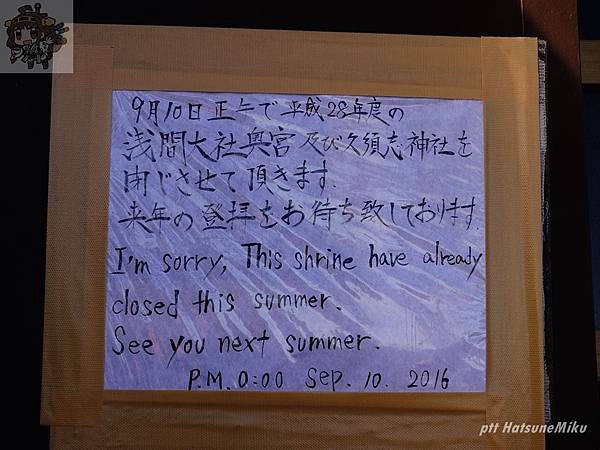 9月10日正午で平成28年度の
浅間大社奥宮及び久須志神社を
閉じさせて頂きます.
来年の登拝をお待ち致しております.
I'm sorry, This shrine have already
closed this summer.
See you next summer.
P.M.0:00 Sep. 10. 2016
ptt HatsuneMiku